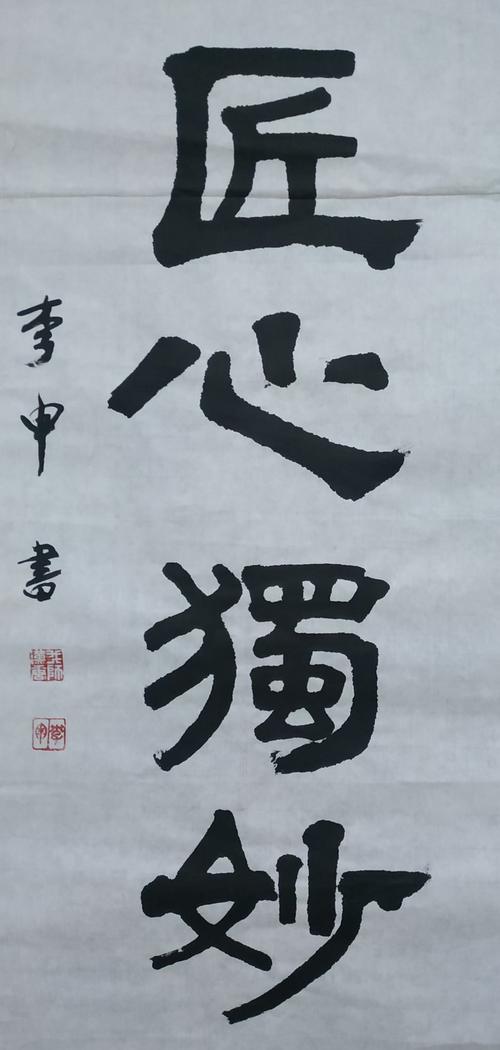 匠心獨妙
李申書